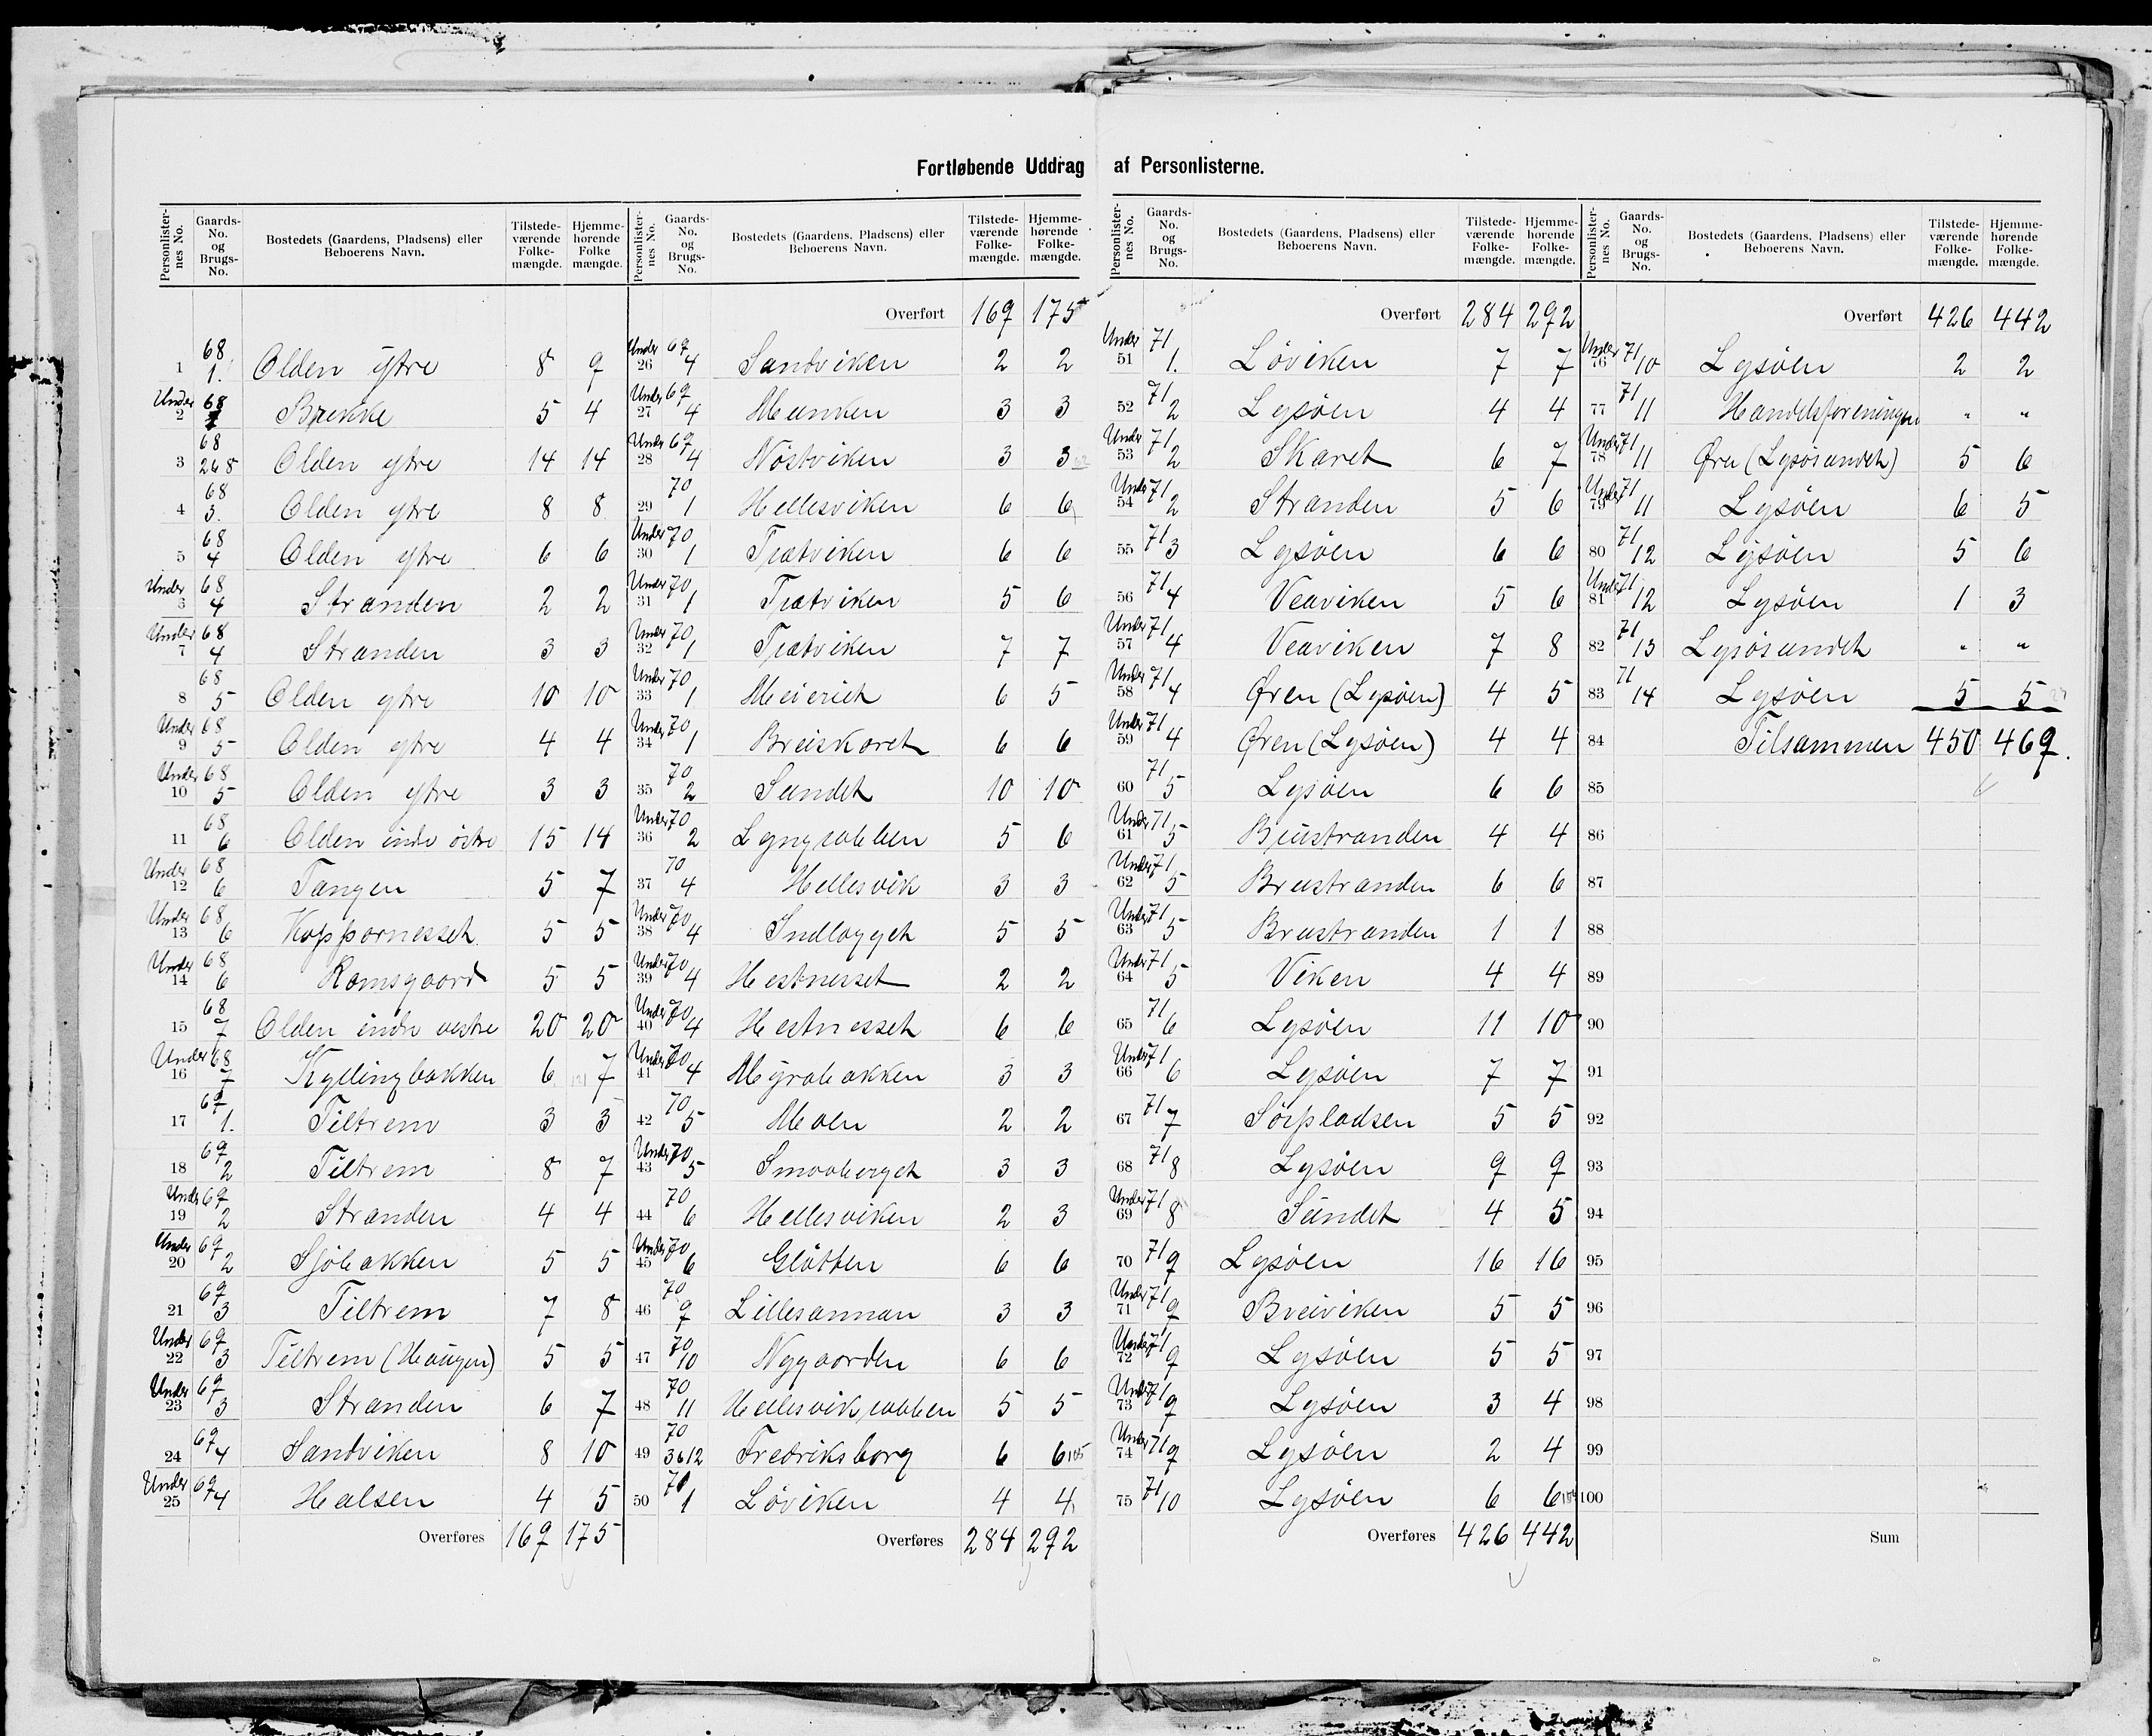 Fortløbende Uddrag af Personlisterne.
Personlister-nes No. | Gaards-No. og Brugs-No. | Bostedets (Gaardens, Pladsens) eller Beboerens Navn. | Tilstede-værende Folke-mængde. | Hjemme-hørende Folke mængde.
1 68/1. Olden ytre 8 9
Under 2 68/1 Brekke 5 4
3 68/2&8 Olden ytre 14 14
4 68/3. Olden ytre 8 8
5 68/4 Olden ytre 6 6
Under 3 68/4 Stranden 2 2
Under 7 68/4 Stranden 3 3
8 68/5 Olden ytre 10 10
Under 9 68/5 Olden ytre 4 4
Under 10 68/5 Olden ytre 3 3
11 68/6 Olden indr östre 15 14
Under 12 68/6 Tangen 5 7
Under 13 68/6 Koppornesset 5 5
Under 14 68/6 Ramsgaard 5 5
15 68/7 Olden indre vestre 20 20
Under 16 68/7 Kyllingbakken 6 7
17 69/1. Tiltrem 3 3
18 69/2 Tiltrem 8 7
Under 19 69/2 Stranden 4 4
Under 20 69/2 Sjöbakken 5 5
21 69/3 Tiltrem 7 8
Under 22 69/3 Tiltrem (Haugen) 5 5
Under 23 69/3 Stranden 6 7
24 69/4 Sandviken 8 10
Under 25 69/4 Halsen 4 5
Overføres 169 175
Personlister-nes No. | Gaards-No. og Brugs-No. | Bostedets (Gaardens, Pladsens) eller Beboerens Navn. | Tilstede-værende Folke-mængde. | Hjemme-hørende Folke-mængde.
Overført 169 175
Under 26 69/4 Sandviken 2 2
Under 27 69/4 Munken 3 3
Under 28 69/4 Nöstviken 3 3
29 70/1 Hellesviken 6 6
Under 30 70/1 Tjætviken 6 6
Under 31 70/1 Tjætviken 5 6
Under 32 70/1 Tjætviken 7 7
Under 33 70/1 Meieriet 6 5
Under 34 70/1 Breiskaret 6 6
35 70/2 Sundet 10 10
Under 36 70/2 Lyngrabben 5 6
37 70/4 Hellesvik 3 3
Under 38 70/4 Indlægget 5 5
Under 39 70/4 Hestnesset 2 2
Under 40 70/4 Hestnesset 6 6
Under 41 70/4 Myrabakken 3 3
42 70/5 Moen 2 2
Under 43 70/5 Smaaberget 3 3
44 70/6 Hellesviken 2 3
Under 45 70/6 Glötten 6 6
46 70/9 Lillesannan 3 3
47 70/10 Nygaarden 6 6
48 70/11 Hellesvikrabben 5 5
49 70/3&12 Fredriksborg 6 6 105
50 71/1 Löviken 4 4
Overføres 284 292
Personlister-nes No. | Gaards-No. og Brugs-No. | Bostedets (Gaardens, Pladsens) eller Beboerens Navn. | Tilstede-værende Folke-mængde. | Hjemme-hørende Folke-mængde.
Overført 284 292
Under 51 71/1. Löviken 7 7
52 71/2 Lysöen 4 4
Under 53 71/2 Skaret 6 7
Under 54 71/2 Stranden 5 6
55 71/3 Lysöen 6 6
56 71/4 Veaviken 5 6
Under 57 71/4 Veaviken 7 8
Under 58 71/4 Øren (Lysöen) 4 5
Under 59 71/4 Øren (Lysöen) 4 4
60 71/5 Lysöen 6 6
Under 61 71/5 Breistranden 4 4
Under 62 71/5 Breistranden 6 6
Under 63 71/5 Breistranden 1 1
Under 64 71/5 Viken 4 4
65 71/6 Lysöen 11 10
Under 66 71/6 Lysöen 7 7
67 71/7 Sörpladsen 5 5
68 71/8 Lysöen 9 9
Under 69 71/8 Sundet 4 5
70 71/9 Lysöen 16 16
Under 71 71/9 Breiviken 5 5
Under 72 71/9 Lysöen 5 5
Under 73 71/9 Lysöen 3 4
Under 74 71/9 Lysöen 2 4
75 71/10 Lysöen 6 6
Overføres 426 442
Personlister-nes No. | Gaards-No. og Brugs-No. | Bostedets (Gaardens, Pladsens) eller Beboerens Navn. | Tilstede-værende Folke-mængde. | Hjemme-hørende Folke-mængde.
Overført 426 442
Under 76 71/10 Lysöen 2 2
77 71/11 Handelsforeningen " "
Under 78 71/11 Øren (Lysösundet) 5 6
Under 79 71/11 Lysöen 6 5
80 71/12 Lysöen 5 6
Under 81 71/12 Lysöen 1 3
82 71/13 Lysösundet " "
83 71/14 Lysöen 5 5
84 Tilsammen 450 469.
85
86
87
88
89
90
91
92
93
94
95
96
97
98
99
100
Sum